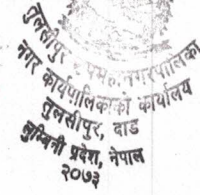 तुलसीपुर उपमहानगरपालिका
नगर कार्यपालिकाको कार्यालय
तुलसीपुर, दाङ
लुम्बिनी प्रदेश, नेपाल
२०७३